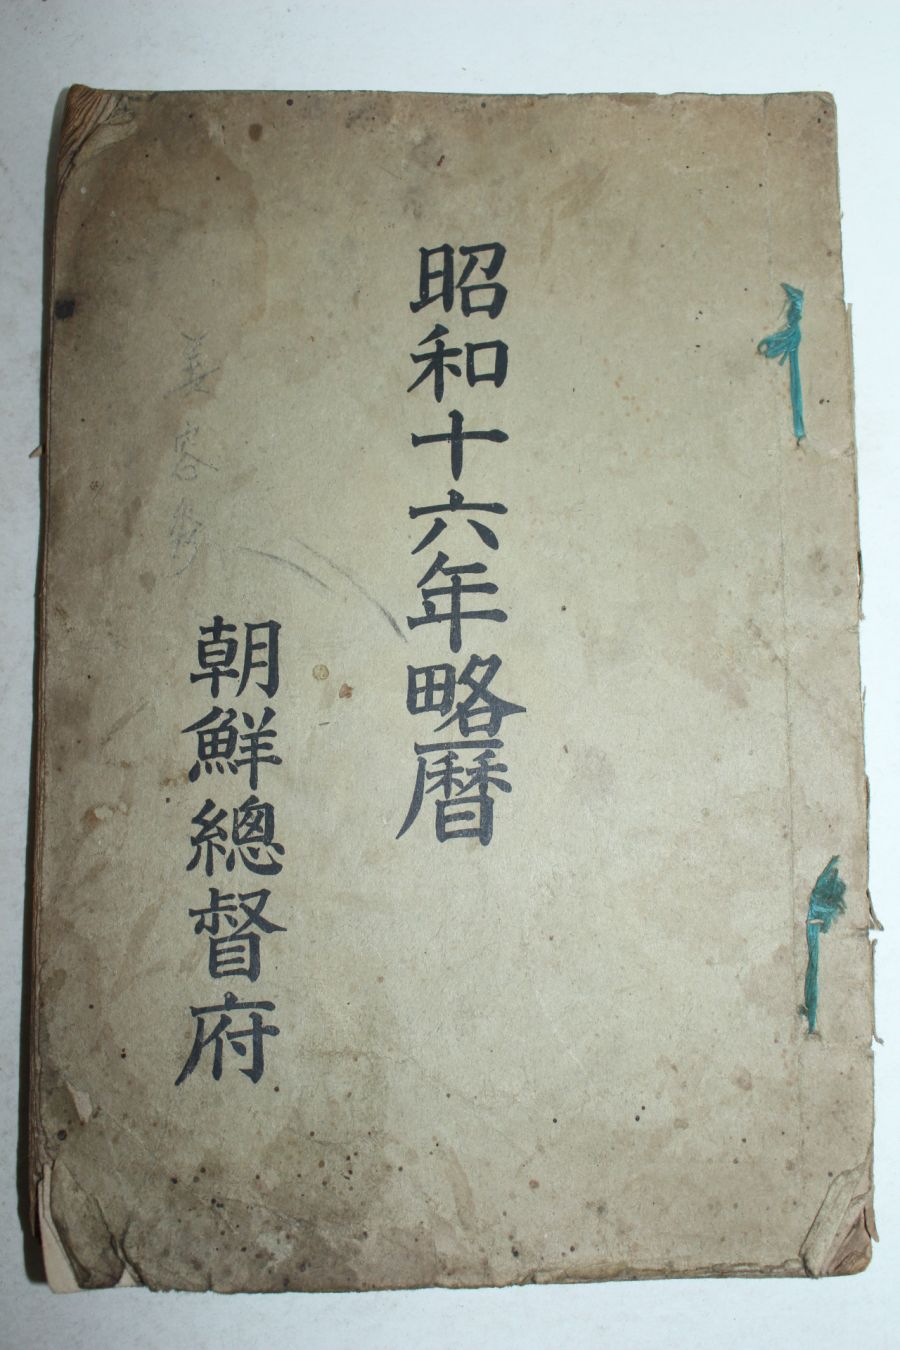 昭和十六年略曆
朝鮮總督府